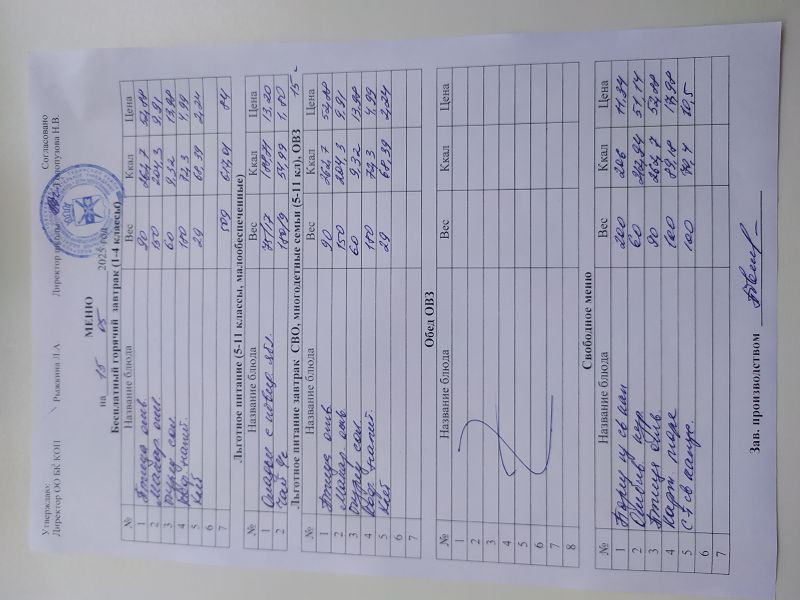 Утверждаю: Согласовано
Директор ОО БК КОП Рыжкина Л.А. Директор школы Голопузова Н.В.
МЕНЮ
на 15 05 2025 год
Бесплатный горячий завтрак (1-4 классы)
№ Название блюда Вес Ккал Цена
1 Птица отв 90 262,7 52,88
2 Макар отв 150 204,3 9,91
3 Огурец сол. 60 9,32 13,98
4 напит. 180 72,3 4,99
5 Хлеб 29 68,39 2,24
6
7 509 617,01 84
Льготное питание (5-11 классы, малообеспеченные)
№ Название блюда Вес Ккал Цена
1 Оладьи с повидл. ябл. 75/17 13,20
2 Чай 180/9 34,99 1,80
15
Льготное питание завтрак СВО, многодетные семьи (5-11 кл), ОВЗ
№ Название блюда Вес Ккал Цена
1 Птица отв 90 262,7 52,88
2 Макар отв 150 204,3 9,91
3 Огурец сол 60 9,32 13,98
4 напит. 180 72,3 4,99
5 Хлеб 29 68,39 2,24
6
7
Обед ОВЗ
№ Название блюда Вес Ккал Цена
1
2
3
4
5
6
7
8
Свободное меню
№ Название блюда Вес Ккал Цена
1 Борщ из св кап 200 206 11.34
2 60 51.14
3 Птица отв 90 262,7 52,88
4 Карт пюре 100 89,18 17,98
5 С-т св капус. 100 70,4 10,5
6
7
Зав. производством